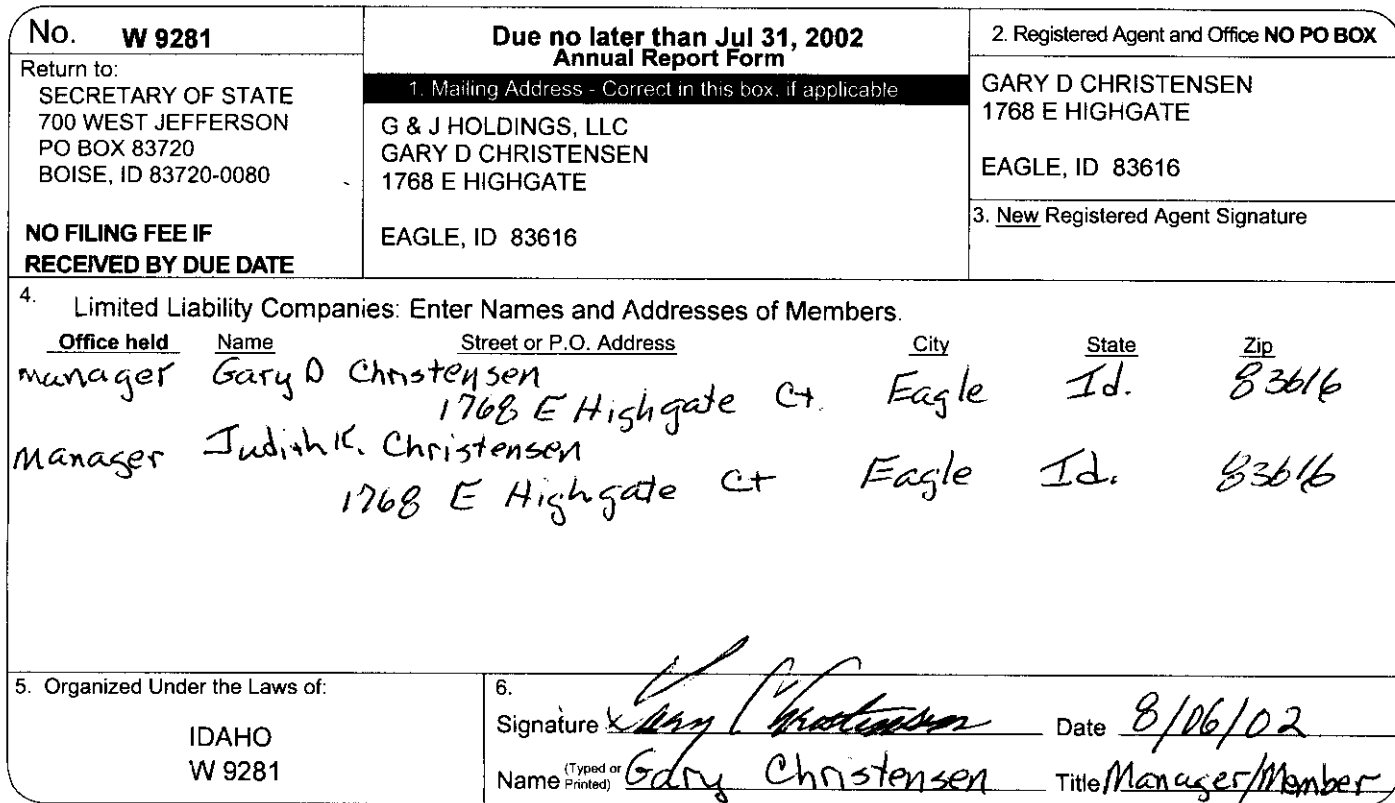 No. W 9281
Return to:
SECRETARY OF STATE
700 WEST JEFFERSON
PO BOX 83720
BOISE, ID 83720-0080
NO FILING FEE IF
RECEIVED BY DUE DATE
Due no later than Jul 31, 2002
Annual Report Form
1. Mailing Address - Correct in this box, if applicable
G & J HOLDINGS, LLC
GARY D CHRISTENSEN
1768 E HIGHGATE
EAGLE, ID 83616
2. Registered Agent and Office NO PO BOX
GARY D CHRISTENSEN
1768 E HIGHGATE
EAGLE, ID 83616
3. New Registered Agent Signature
4. Limited Liability Companies: Enter Names and Addresses of Members.
Office held Name Street or P.O. Address City State Zip
manager Gary D Christensen
1768 E Highgate Ct. Eagle Id. 83616
Manager Judith K. Christensen
1768 E Highgate Ct Eagle Id. 83616
5. Organized Under the Laws of:
IDAHO
W 9281
6.
Signature x Gary Christensen Date 8/06/02
Name (Typed or Printed) Gary Christensen Title Manager/Member